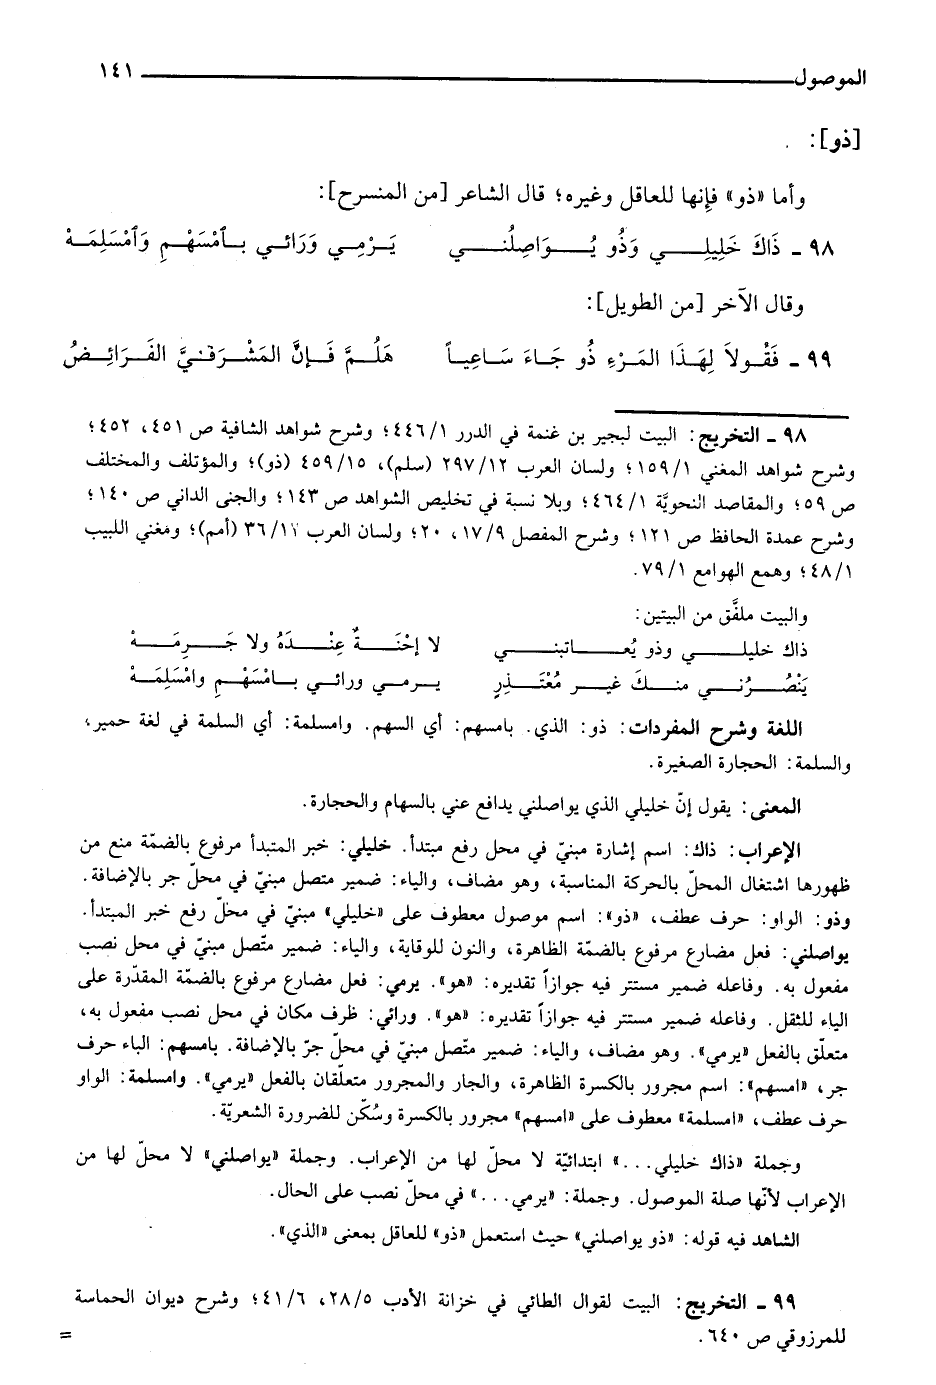 الموصول ١٤١
[ذو]:
وأما «ذو» فإنها للعاقل وغيره؛ قال الشاعر [من المنسرح]:
٩٨ ـ ذَاكَ خَلِيلِي وَذُو يُوَاصِلُنِي يَرْمِي وَرَائِي بِآمْسَهْمِ وَآمْسَلِمَهْ
وقال الآخر [من الطويل]:
٩٩ ـ فَقُولاَ لِهَذَا المَرْءِ ذُو جَاءَ سَاعِياً هَلُمَّ فَإِنَّ المَشْرَفِيَّ الفَرَائِضُ
٩٨ ـ التخريج: البيت لبجير بن غنمة في الدرر ٤٤٦/١؛ وشرح شواهد الشافية ص ٤٥١، ٤٥٢؛
وشرح شواهد المغني ١٥٩/١؛ ولسان العرب ٢٩٧/١٢ (سلم)، ٤٥٩/١٥ (ذو)؛ والمؤتلف والمختلف
ص ٥٩؛ والمقاصد النحويَّة ٤٦٤/١؛ وبلا نسبة في تخليص الشواهد ص ١٤٣؛ والجنى الداني ص ١٤٠؛
وشرح عمدة الحافظ ص ١٢١؛ وشرح المفصل ١٧/٩، ٢٠؛ ولسان العرب ٣٦/١٢ (أمم)؛ ومغني اللبيب
٤٨/١؛ وهمع الهوامع ٧٩/١.
والبيت ملفَّق من البيتين:
ذاك خليلي وذو يُعاتبني لا إحْنَةٌ عِنْدَهُ ولا جَرِمَهْ
يَنْصُرُني منكَ غير مُعْتَذِرٍ يرمي ورائي بامْسَهْمِ وامْسَلِمَهْ
اللغة وشرح المفردات: ذو: الذي. بامسهم: أي السهم. وامسلمة: أي السلمة في لغة حمير،
والسلمة: الحجارة الصغيرة.
المعنى: يقول إنّ خليلي الذي يواصلني يدافع عني بالسهام والحجارة.
الإعراب: ذاك: اسم إشارة مبنيّ في محل رفع مبتدأ. خليلي: خبر المتبدأ مرفوع بالضمّة منع من
ظهورها اشتغال المحلّ بالحركة المناسبة، وهو مضاف، والياء: ضمير متصل مبنيّ في محلّ جر بالإضافة.
وذو: الواو: حرف عطف، «ذو»: اسم موصول معطوف على «خليلي» مبنيّ في محلّ رفع خبر المبتدأ.
يواصلني: فعل مضارع مرفوع بالضمّة الظاهرة، والنون للوقاية، والياء: ضمير متّصل مبنيّ في محل نصب
مفعول به. وفاعله ضمير مستتر فيه جوازاً تقديره: «هو». يرمي: فعل مضارع مرفوع بالضمّة المقدّرة على
الياء للثقل. وفاعله ضمير مستتر فيه جوازاً تقديره: «هو». ورائي: ظرف مكان في محل نصب مفعول به،
متعلّق بالفعل «يرمي». وهو مضاف، والياء: ضمير متّصل مبنيّ في محلّ جرّ بالإضافة. بامسهم: الباء حرف
جر، «امسهم»: اسم مجرور بالكسرة الظاهرة، والجار والمجرور متعلّقان بالفعل «يرمي». وامسلمة: الواو
حرف عطف، «امسلمة» معطوف على «امسهم» مجرور بالكسرة وسُكّن للضرورة الشعريّة.
وجملة «ذاك خليلي...» ابتدائيّة لا محلّ لها من الإعراب. وجملة «يواصلني» لا محلّ لها من
الإعراب لأنّها صلة الموصول. وجملة: «يرمي...» في محلّ نصب على الحال.
الشاهد فيه قوله: «ذو يواصلني» حيث استعمل «ذو» للعاقل بمعنى «الذي».
٩٩ ـ التخريج: البيت لقوال الطائي في خزانة الأدب ٢٨/٥، ٤١/٦؛ وشرح ديوان الحماسة
للمرزوقي ص ٦٤٠. =